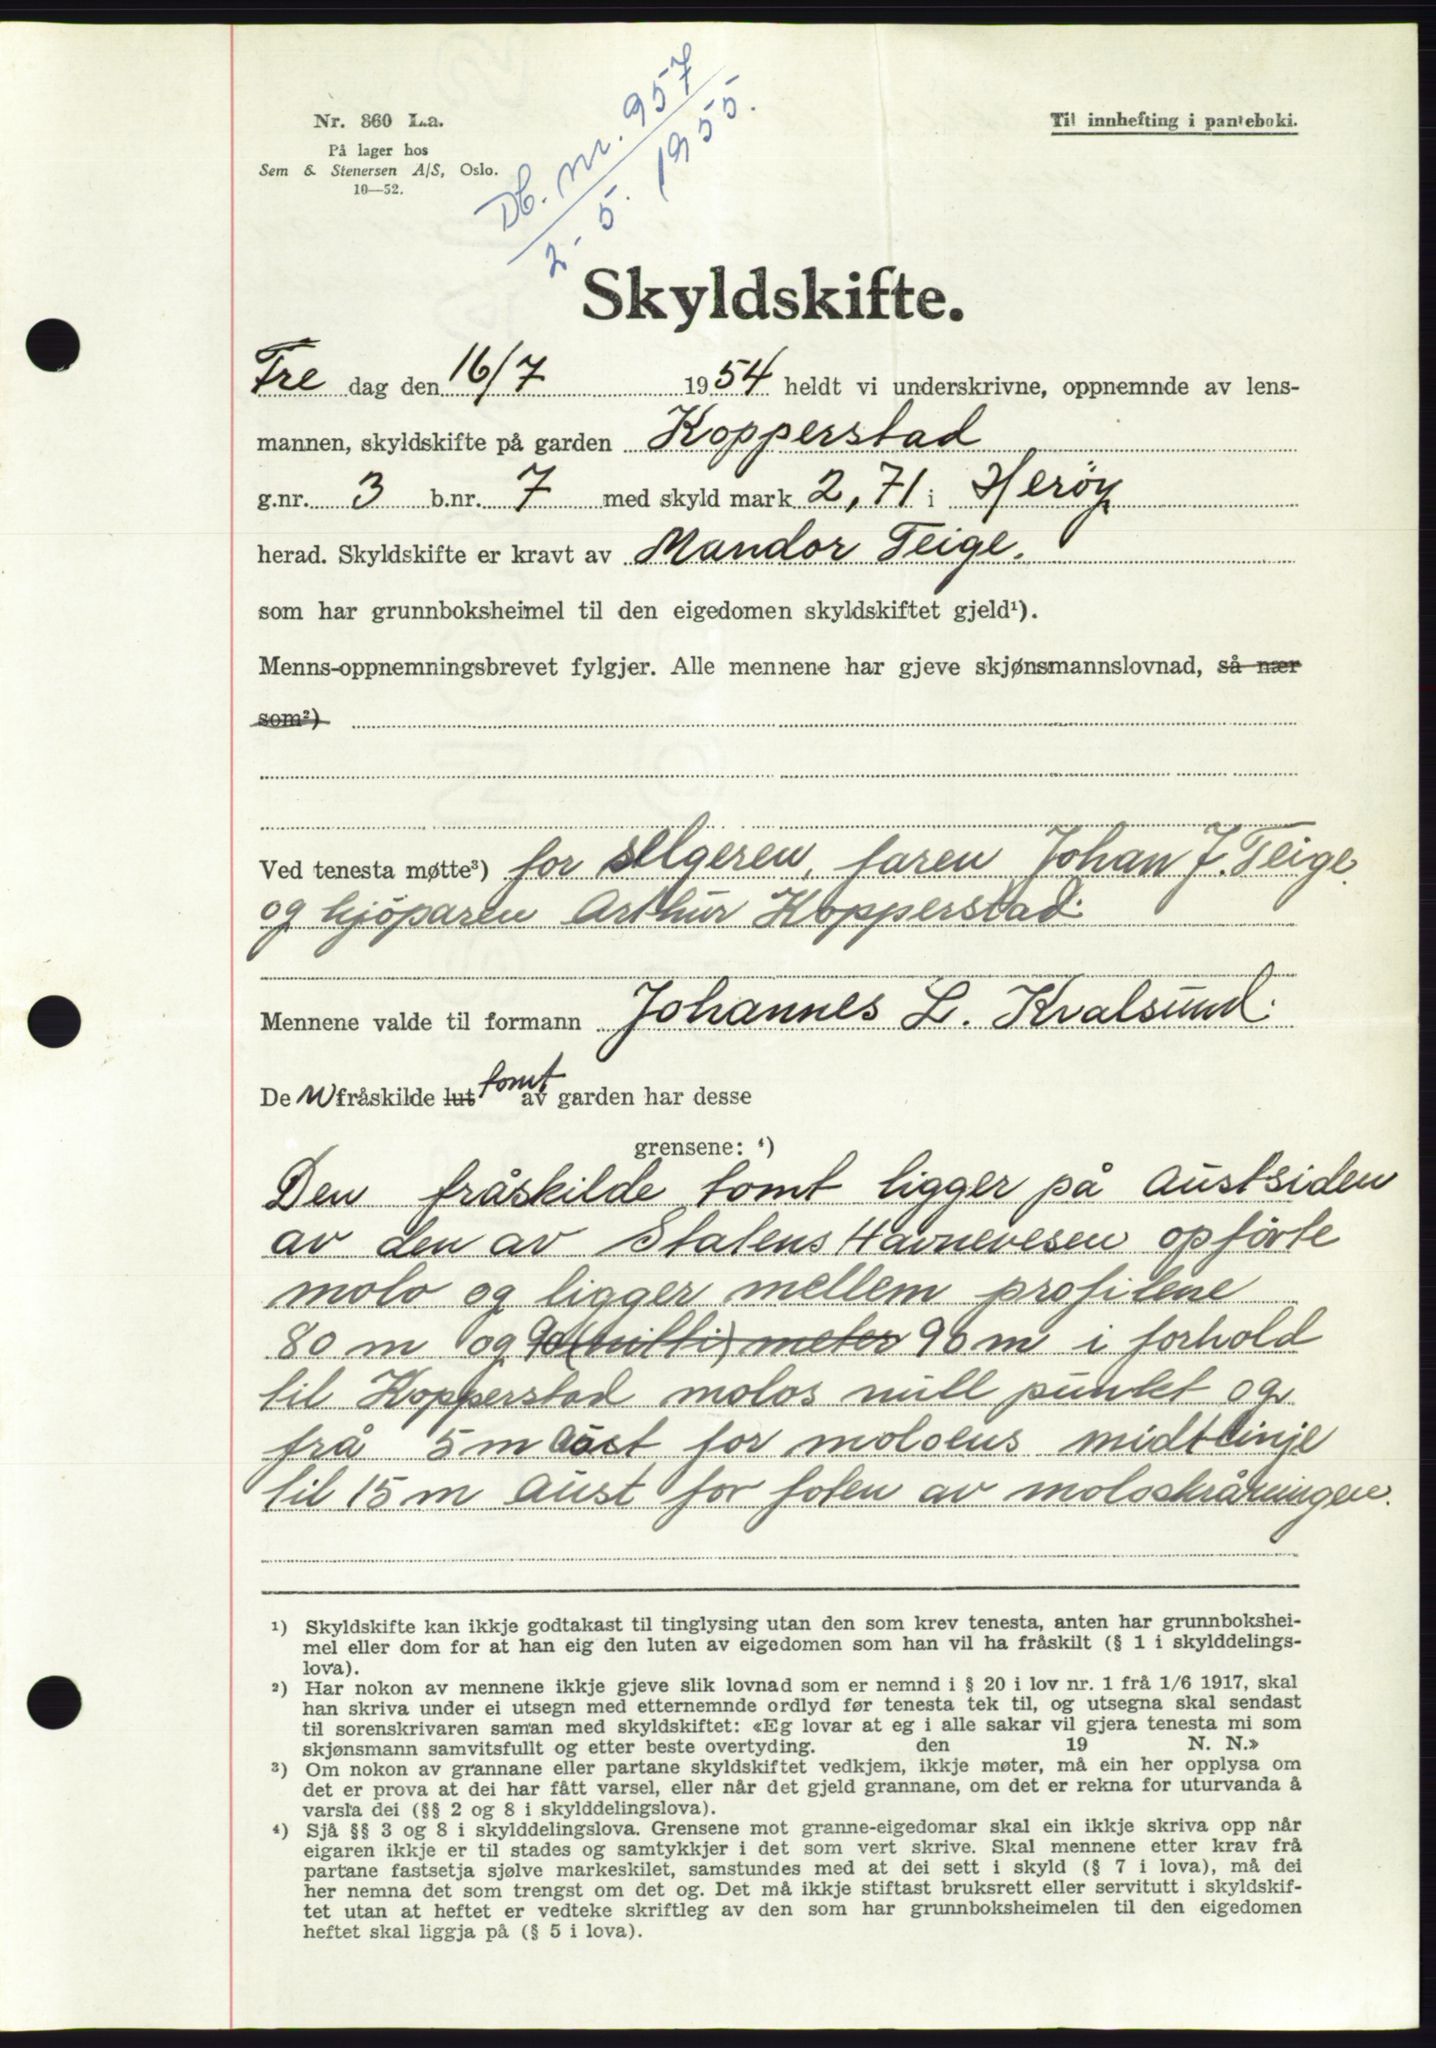 Nr. 860 L.a.
På lager hos
Sem & Stenersen A/S, Oslo.
10—52.
Db. nr. 957
2 - 5. 1955.
Til innhefting i panteboki.
Skyldskifte.
Fre dag den 16/7 1954 heldt vi underskrivne, oppnemnde av lens-
mannen, skyldskifte på garden Kopperstad
g.nr. 3 b.nr. 7 med skyld mark 2,71 i Herøy
herad. Skyldskifte er kravt av Mandor Teige.
som har grunnboksheimel til den eigedomen skyldskiftet gjeld¹).
Menns-oppnemningsbrevet fylgjer. Alle mennene har gjeve skjønsmannslovnad, så nær
som²)
Ved tenesta møtte³) for selgeren, faren Johan J. Teige
og kjöparen Arthur Kopperstad.
Mennene valde til formann Johannes L. Kvalsund.
De n fråskilde lut tomt av garden har desse
grensene: ⁴)
Den fråskilde tomt ligger på austsiden
av den av Statens Havnevesen opförte
molo og ligger mellem profilene
80 m og 90 (nitti) meter 90 m i forhold
til Kopperstad molos null punkt og
frå 5 m aust for moloens midtlinje
til 15 m aust for foten av moloskråningen.
¹) Skyldskifte kan ikkje godtakast til tinglysing utan den som krev tenesta, anten har grunnbokshei-
mel eller dom for at han eig den luten av eigedomen som han vil ha fråskilt (§ 1 i skylddelings-
lova).
²) Har nokon av mennene ikkje gjeve slik lovnad som er nemnd i § 20 i lov nr. 1 frå 1/6 1917, skal
han skriva under ei utsegn med etternemnde ordlyd før tenesta tek til, og utsegna skal sendast
til sorenskrivaren saman med skyldskiftet: «Eg lovar at eg i alle sakar vil gjera tenesta mi som
skjønsmann samvitsfullt og etter beste overtyding. den 19 N. N.»
³) Om nokon av grannane eller partane skyldskiftet vedkjem, ikkje møter, må ein her opplysa om
det er prova at dei har fått varsel, eller når det gjeld grannane, om det er rekna for uturvanda å
varsla dei (§§ 2 og 8 i skylddelingslova).
⁴) Sjå §§ 3 og 8 i skylddelingslova. Grensene mot granne-eigedomar skal ein ikkje skriva opp når
eigaren ikkje er til stades og samtykkjer i det som vert skrive. Skal mennene etter krav frå
partane fastsetja sjølve markeskilet, samstundes med at dei sett i skyld (§ 7 i lova), må dei
her nemna det som trengst om det og. Det må ikkje stiftast bruksrett eller servitutt i skyldskif-
tet utan at heftet er vedteke skriftleg av den som har grunnboksheimelen til den eigedomen
heftet skal liggja på (§ 5 i lova).